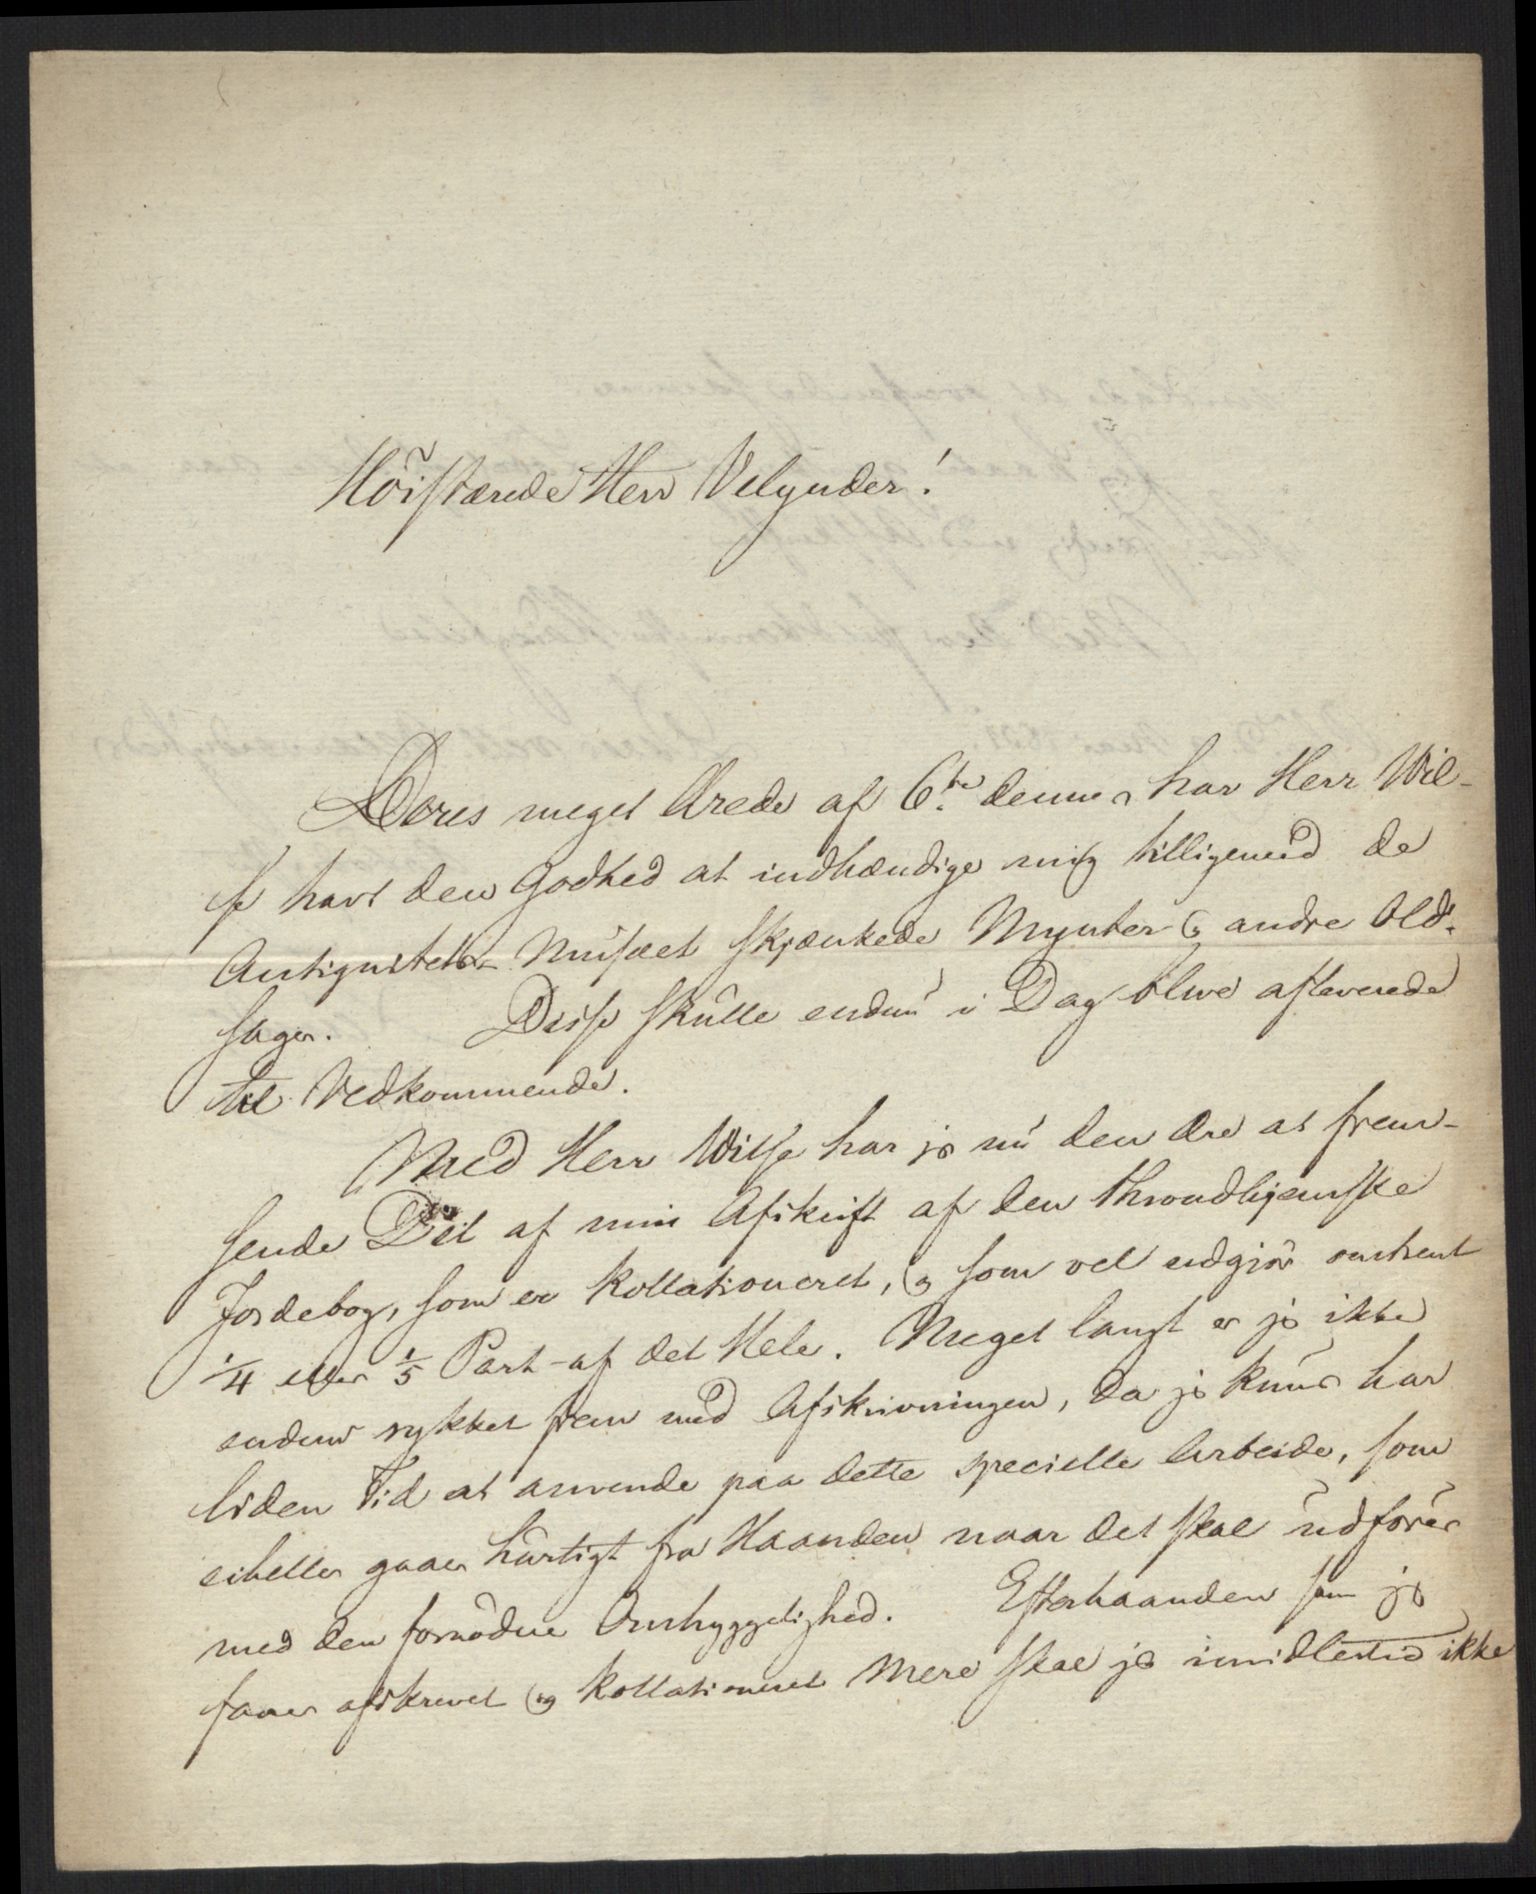 Höistærede Herr Velynder!
Deres meget Ærede af 6te dennes har Herr Wil-
se havt den Godhed at indhændige mig tilligemed de
Antiquitets Musæet skjænkede Mynter og andre Old-
sager. Disse skulle endnu i Dag blive afleverede
til Vedkommende.
Med Herr Wilse har jeg nu den Ære at frem-
sende Deel af min Afskrift af den throndhjemske
Jordebog, som er kollationeret, og som vel udgjör omtrent
1/4 eller 1/5 Part af det Hele. Meget langt er jeg ikke
endnu rykket frem med Afskrivningen, da jeg kuns har
liden Tid at anvende paa dette specielle Arbeide, som
eiheller gaaer hurtigt fra Haanden naar det skal udföres
med den fornödne Omhyggelighed. Efterhaanden som jeg
faaer afskrevet og kollationeret Mere skal jeg imidlertid ikke